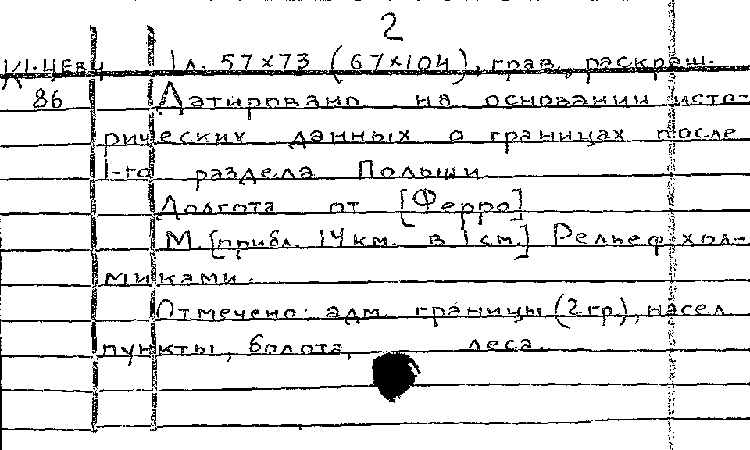 2
К1-ЦЕВ 1 л. 57×73 (67×104), грав., раскраш.
86 Датировано на основании исто-
рических данных о границах после
1-го раздела Польши
Долгота от [Ферро]
М. [прибл. 14 км. в 1 см.] Рельеф хол-
миками.
Отмечено: адм. границы (2 гр), насел
пункты, болота, леса.